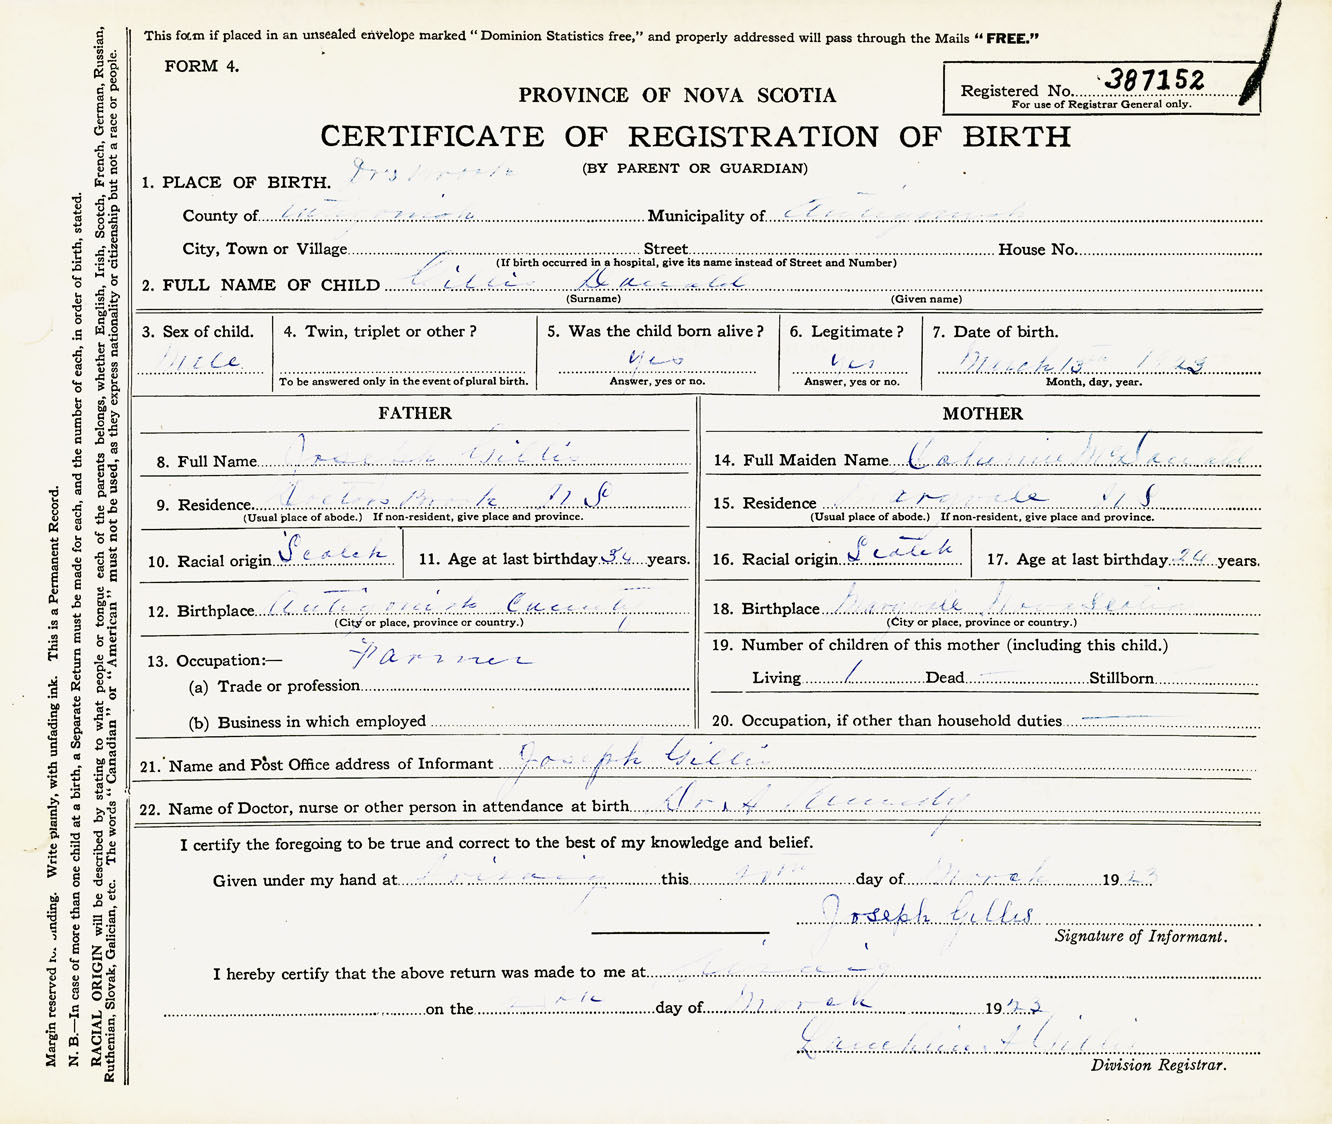 This form if placed in an unsealed envelope marked "Dominion Statistics free," and properly addressed will pass through the Mails "FREE."
FORM 4.
Registered No. 387152
For use of Registrar General only.
PROVINCE OF NOVA SCOTIA
CERTIFICATE OF REGISTRATION OF BIRTH
(BY PARENT OR GUARDIAN)
1. PLACE OF BIRTH. Drs Brook
County of Antigonish Municipality of Antigonish
City, Town or Village Street House No.
(If birth occurred in a hospital, give its name instead of Street and Number)
2. FULL NAME OF CHILD Gillis Donald
(Surname) (Given name)
3. Sex of child. 4. Twin, triplet or other? 5. Was the child born alive? 6. Legitimate? 7. Date of birth.
Male yes yes March 13th 1923
To be answered only in the event of plural birth. Answer, yes or no. Answer, yes or no. Month, day, year.
FATHER
8. Full Name Joseph Gillis
9. Residence Doctors Brook N S
(Usual place of abode.) If non-resident, give place and province.
10. Racial origin Scotch 11. Age at last birthday 34 years.
12. Birthplace Antigonish County
(City or place, province or country.)
13. Occupation:— Farmer
(a) Trade or profession
(b) Business in which employed
MOTHER
14. Full Maiden Name Catherine McDonald
15. Residence Maryvale N S
(Usual place of abode.) If non-resident, give place and province.
16. Racial origin Scotch 17. Age at last birthday 24 years.
18. Birthplace Maryvale Nova Scotia
(City or place, province or country.)
19. Number of children of this mother (including this child.)
Living 1 Dead Stillborn
20. Occupation, if other than household duties
21. Name and Post Office address of Informant Joseph Gillis
22. Name of Doctor, nurse or other person in attendance at birth Dr.
I certify the foregoing to be true and correct to the best of my knowledge and belief.
Given under my hand at Arisaig this day of March 1923
Joseph Gillis
Signature of Informant.
I hereby certify that the above return was made to me at Arisaig
on the day of March 1923
Gillis
Division Registrar.
Margin reserved for binding. Write plainly, with unfading ink. This is a Permanent Record.
N. B.—In case of more than one child at a birth, a Separate Return must be made for each, and the number of each, in order of birth, stated.
RACIAL ORIGIN will be described by stating to what people or tongue each of the parents belongs, whether English, Irish, Scotch, French, German, Russian,
Ruthenian, Slovak, Galician, etc. The words "Canadian" or "American" must not be used, as they express nationality or citizenship but not a race or people.